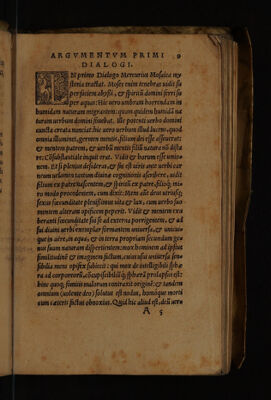 ARGVMENTVM PRIMI 9
DIALOGI.
IN primo Dialogo Mercurius Mosaica my
steria tractat. Moses enim tenebras uidit su
per faciem abyssi, & spiritum domini ferri su
per aquas: Hic uero umbram horrendam in
humidam naturam migrantem: quam quidem humidā na
turam uerbum domini fouebat. Ille potenti uerbo domini
cuncta creata nunciat: hic uero uerbum illud lucens, quod
omnia illuminet, germen mentis, filium dei esse asseuerat:
& mentem patrem, & uerbū mentis filiū natura nō dista
re: Cōsubstantiale inquit erat. Vidit & harum esse uniōnē.
Et si planius desideras, & hic est uerbo ante uerbi car
neum uelamen tantum diuina cognitionis asserere, uidit
filium ex patre fuisse natum, & spiritū ex patre, filioq; mi
ro modo procedentem, cum dixit: Mens aūt deus utriusq;
sexus foecunditate plenissimus uita & lux, cum uerbo suo
mentem alteram opificem peperit. Vidit & mentem exu
beranti foecunditate sui se ad externa porrigentem, & ad
sui diuini uerbi exemplar formantem uniuersa, & unicui
que in aere, et aqua, & in terra propriam secundum ge
nus suum naturam dispertientem: mox hominem ad ipsius
similitudinē & imaginem fictum, cui uasta uniuersa sen
sibilia mens opifex subiecit: qui mox de intelligibili sphæ
ra ad corpoream, cōcupiscibilēq; sphærā prolapsus est:
hinc quoq; semiuis malorum contraxit originē: & tandem
omnium (uolente deo) solutus est nodus, homoque morti
cum cæteris fictus obnoxius. Quid hic aliud est, deū uere
A 5